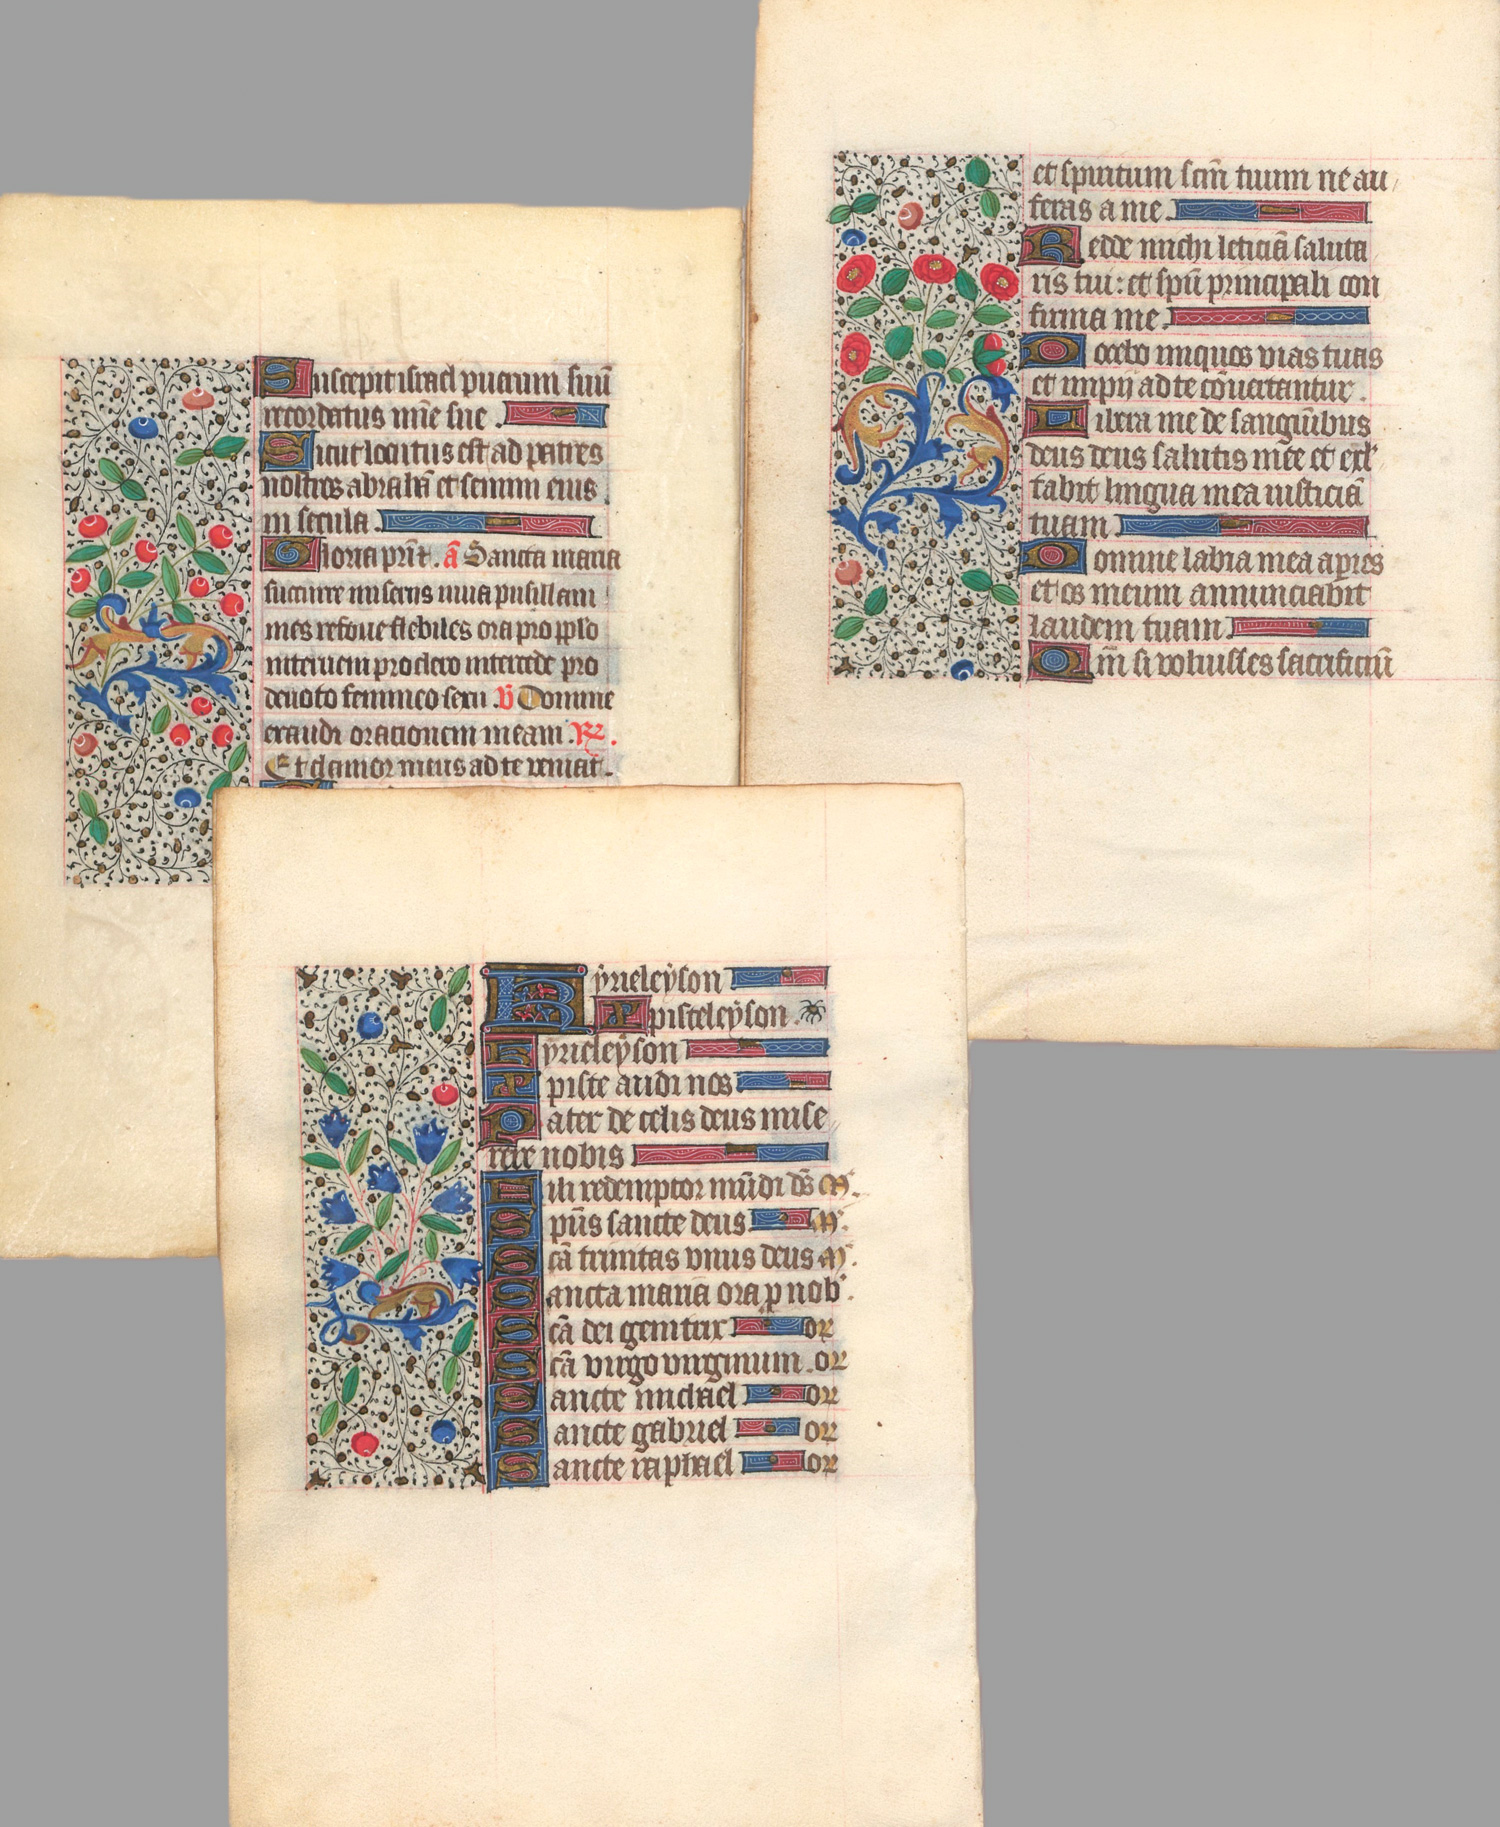 Suscepit israel puerum suū
recordatus mīe sue .
Sicut locutus est ad patres
nostros abrahā et semini eius
in secula
Gloria prī⁊ . ā Sancta maria
succurre miseris iuua pusillani
mes refoue flebiles ora pro pplo
interueni pro clero intercede pro
deuoto femineo sexu .v̄ Domine
exaudi orationem meam .R⁊.
Et clamor meus ad te veniat .
et spiritum scm̄ tuum ne au
feras a me .
Redde michi leticiā saluta
ris tui : et spū principali con
firma me .
Docebo iniquos vias tuas
et impij ad te cōuertantur .
Libera me de sanguībus
deus deus salutis mee et exl
tabit lingua mea iusticiā
tuam
Domine labia mea aperies
et os meum annunciabit
laudem tuam
Qm̄ si voluisses sacrificiū
Kyrieleyson
Xpisteleyson .
Kyrieleyson
Xpiste audi nos
Pater de celis deus mise
rere nobis
Fili redemptor mūdi ds̄ M.
Spūs sancte deus M.
Scā trinitas vnus deus M.
Sancta maria ora p nob.
Scā dei genitrix or
Scā virgo virginum . or
Sancte michael or
Sancte gabriel or
Sancte raphael or